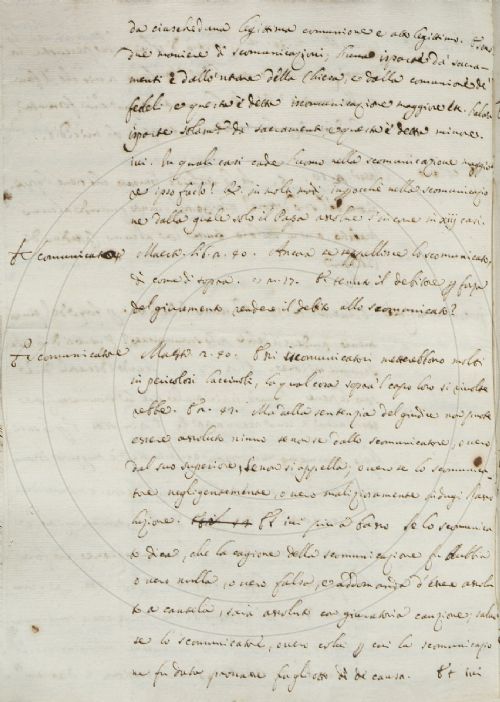 da ciascheduna legittima comunione e atto legittimo. E son
due maniere di scomunicazioni, l'una isparte da' sacra-
menti e dall'intrare della Chiesa, e dalla comunione de'
fedeli, e questa è detta iscomunicazione maggiore etc. l'altra
isparte solam.e da' sacramenti e questa è detta minore.
ivi. In quali casi cade l'uomo nella scomunicazione maggio
re ipso facto? R. in molti modi imperochè nella scomunicazio
ne dalla quale solo il Papa assolve s'incorre in xiij casi.
scomunicato Maestr. lib. 2. 40. Ancora se appellasse lo scomunicato,
di coma di sopra. 2. 17. È tenuto il debitore p forza
del giuramento, rendere il debito allo scomunicato?
scomunicatore Maestr. 2. 40. gli iscomunicatori metterebbono molti
in pericolosi lacciuoli, la qual cosa sopra 'l capo loro si rivolte
rebbe. 41. Ma dalla sentenzia del giudice non puote
essere assoluto niuno se non se dallo scomunicatore, o vero
dal suo superiore, se non si appella; o vero se lo scomunica-
tore negligentemente, o vero maliziosamente indugi l'asso
luzione. Et ivi più a basso Se lo scomunica
to dica, che la cagione della scomunicazione fu dubbia
o vero nulla, o vero falsa, e addomanda d'essere assolu
to a cautela, sarà assoluto con giuratoria cauzione; salvo
se lo scomunicatore, o vero colui p cui la scomunicazio
ne fu data, provasse fagli otto dì di causa. Et ivi